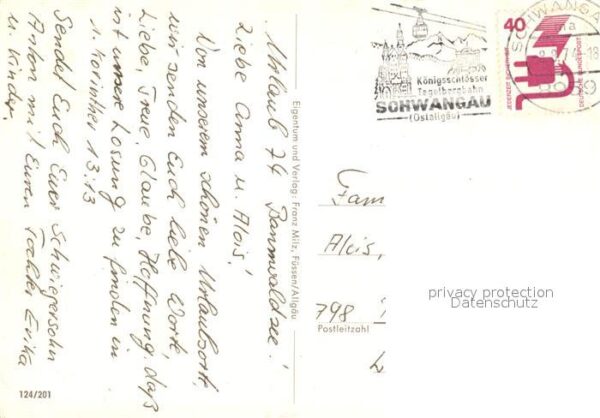 Urlaub 74 Bannwaldsee!
Liebe Anna u. Alois!
Von unserem schönen Urlaubsort,
wir senden Euch liebe Worte,
Liebe, Treue, Glaube, Hoffnung, daß
ist unsere Losung zu finden in
1. Korinther 13.13
Sendet Euch Euer Schwiegersohn
Anton mit Euren Tochter Erika
u. Kinder
124/201
Eigentum und Verlag: Franz Milz, Füssen/Allgäu
Königsschlösser
Tegelbergbahn
SCHWANGAU
(Ostallgäu)
SCHWANGAU
8959
40
JEDERZEIT SICHERHEIT
DEUTSCHE BUNDESPOST
Fam
Alois,
798
Postleitzahl
privacy protection
Datenschutz